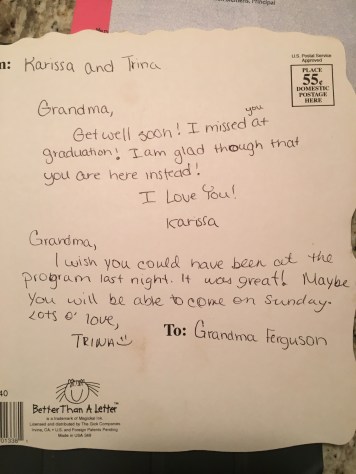 m: Karissa and Trina
U.S. Postal Service
Approved
PLACE
55¢
DOMESTIC
POSTAGE
HERE
Grandma,
Get well soon! I missed you at
graduation! I am glad though that
you are here instead!
I Love You!
Karissa
Grandma,
I wish you could have been at the
program last night. It was great! Maybe
you will be able to come on Sunday.
Lots o' love,
TRINA
To: Grandma Ferguson
40
Better Than A Letter™
is a trademark of Magnilist Ink
Licensed and distributed by The Gick Companies
Irvine, CA. • U.S. and Foreign Patents Pending
Made in USA